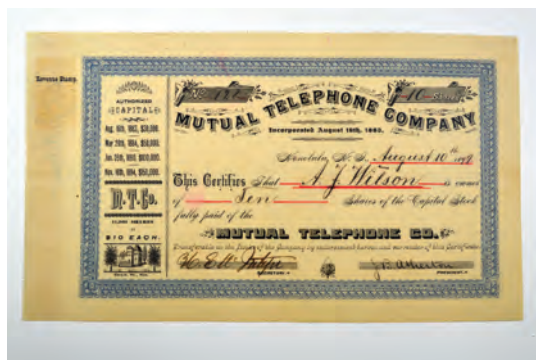 Revenue Stamp.
AUTHORISED
CAPITAL
Aug. 16th, 1883, $30,000.
Mar 28th, 1884, $50,000.
Jan. 25th,
Nov. 16th,
M.T.Co.
SHARES
AT
$10 EACH.
10
MUTUAL TELEPHONE COMPANY
Incorporated August 16th, 1883.
Honolulu, H. I. August 10th
This Certifies That A. J. Wilson is owner
of Ten Shares of the Capital Stock
fully paid of the
MUTUAL TELEPHONE CO.
Transferable on the Books of the Company by endorsement hereon and surrender of this Certificate
SECRETARY.
J B Atherton
PRESIDENT.